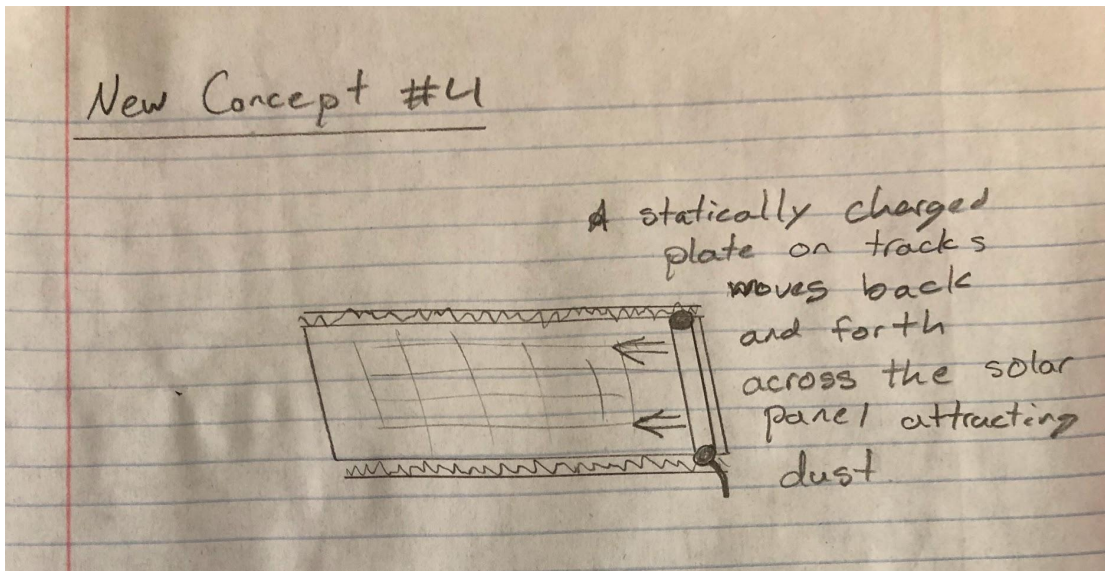 New Concept #4
A statically charged
plate on tracks
moves back
and forth
across the solar
panel attracting
dust.